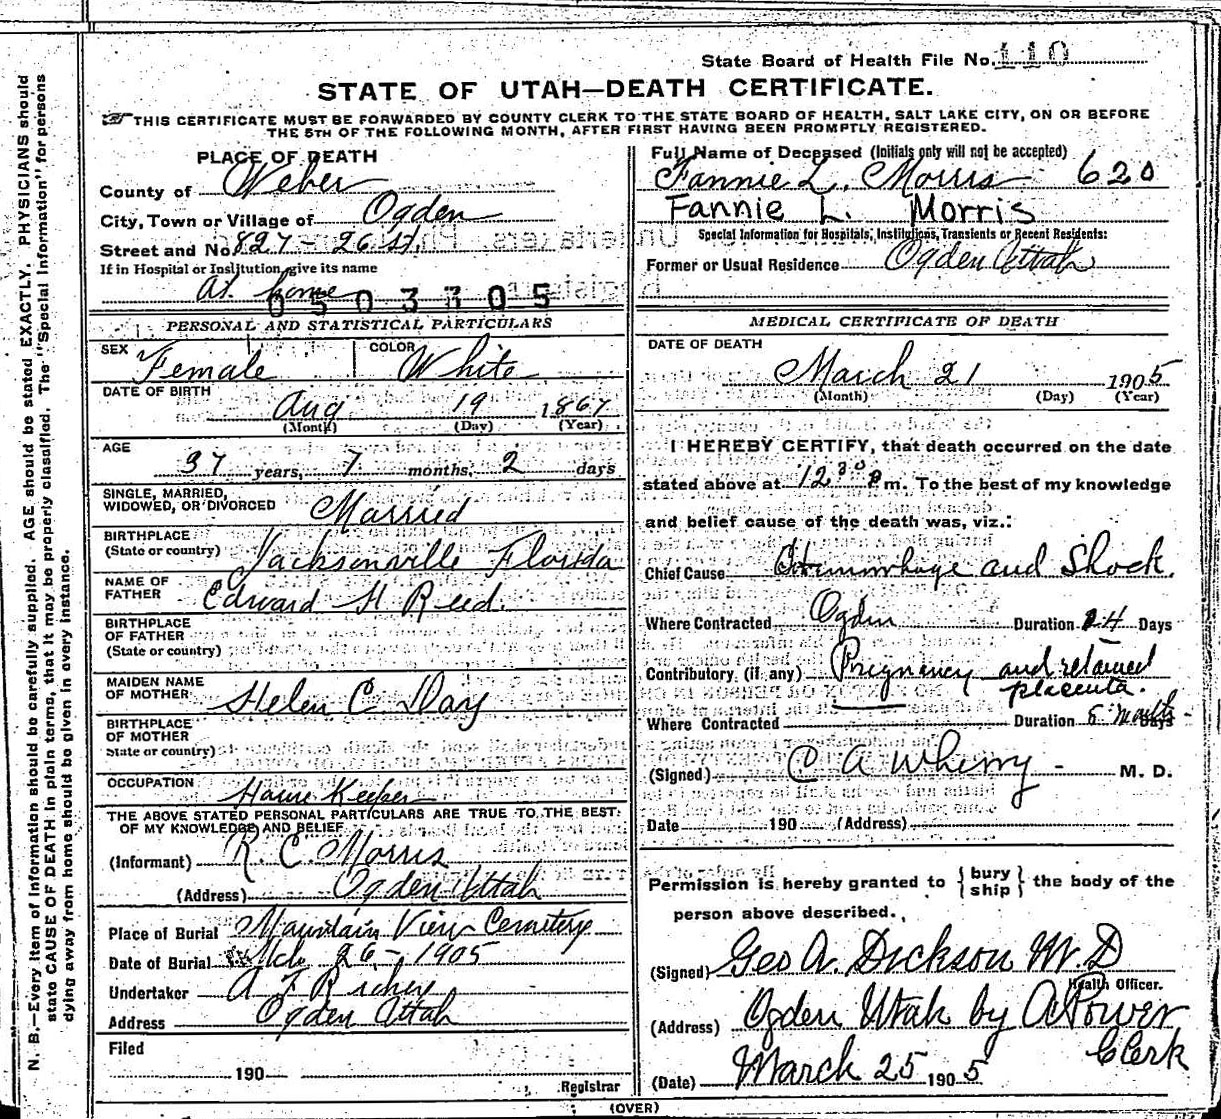 State Board of Health File No. 110
STATE OF UTAH—DEATH CERTIFICATE.
THIS CERTIFICATE MUST BE FORWARDED BY COUNTY CLERK TO THE STATE BOARD OF HEALTH, SALT LAKE CITY, ON OR BEFORE
THE 5TH OF THE FOLLOWING MONTH, AFTER FIRST HAVING BEEN PROMPTLY REGISTERED.
PLACE OF DEATH
County of Weber
City, Town or Village of Ogden
Street and No. 827 - 26 St.
If in Hospital or Institution give its name
At home
0503305
PERSONAL AND STATISTICAL PARTICULARS
SEX Female COLOR White
DATE OF BIRTH
Aug 19 1867
(Month) (Day) (Year)
AGE
37 years, 7 months, 2 days
SINGLE, MARRIED,
WIDOWED, OR DIVORCED Married
BIRTHPLACE
(State or country) Jacksonville Florida
NAME OF
FATHER Edward H Reed
BIRTHPLACE
OF FATHER
(State or country)
MAIDEN NAME
OF MOTHER Helen C Day
BIRTHPLACE
OF MOTHER
State or country)
OCCUPATION House Keeper
THE ABOVE STATED PERSONAL PARTICULARS ARE TRUE TO THE BEST
OF MY KNOWLEDGE AND BELIEF
(Informant) R. C Morris
(Address) Ogden Utah
Place of Burial Mountain View Cemetery
Date of Burial Mch 26 - 1905
Undertaker A F Richey
Address Ogden Utah
Filed
190
Registrar
Full Name of Deceased (Initials only will not be accepted)
Fannie L. Morris 620
Fannie L. Morris
Special Information for Hospitals, Institutions, Transients or Recent Residents:
Former or Usual Residence Ogden Utah
MEDICAL CERTIFICATE OF DEATH
DATE OF DEATH
March 21 1905
(Month) (Day) (Year)
I HEREBY CERTIFY, that death occurred on the date
stated above at 12 30 P m. To the best of my knowledge
and belief cause of the death was, viz.:
Chief Cause Hemorrhage and Shock.
Where Contracted Ogden Duration 24 Days
Contributory (if any) Pregnancy and retained
placenta.
Where Contracted Duration 5 months Days
(Signed) C A Wherry - M. D.
Date 190 (Address)
Permission is hereby granted to {bury
ship} the body of the
person above described.
(Signed) Geo A. Dickson M.D
Health Officer.
(Address) Ogden Utah by A Power
Clerk
(Date) March 25 1905
(OVER)
N. B.—Every item of information should be carefully supplied. AGE should be stated EXACTLY. PHYSICIANS should
state CAUSE OF DEATH in plain terms, that it may be properly classified. The "Special Information" for persons
dying away from home should be given in every instance.